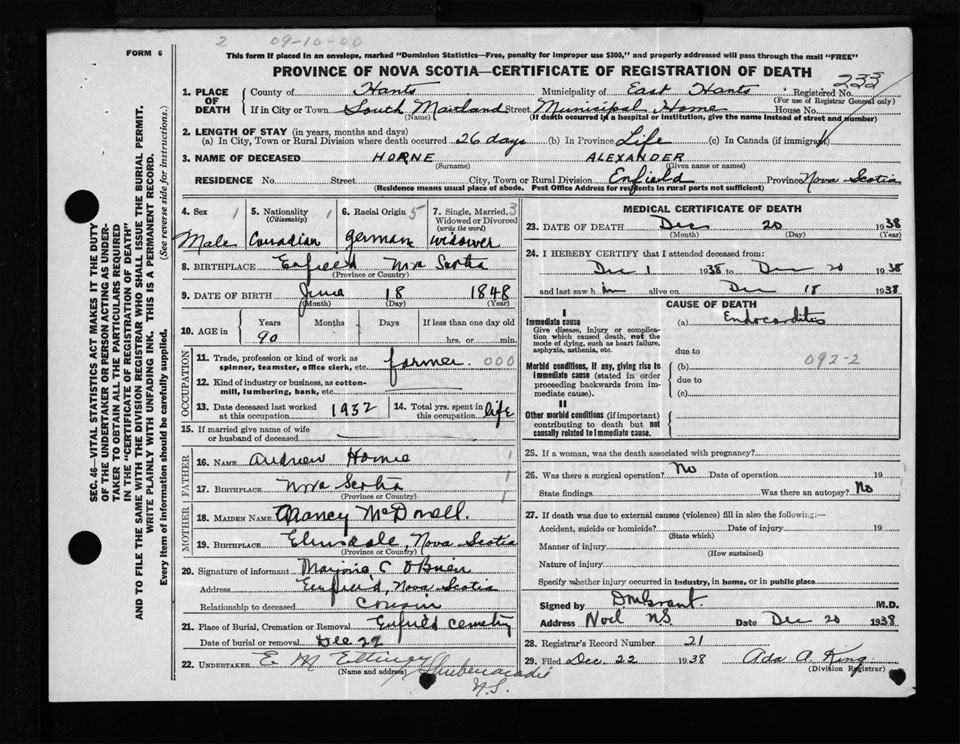 2 09-10-00
FORM 6
This form if placed in an envelope, marked "Dominion Statistics—Free, penalty for improper use $300," and properly addressed will pass through the mail "FREE"
PROVINCE OF NOVA SCOTIA—CERTIFICATE OF REGISTRATION OF DEATH
233
1. PLACE OF DEATH
County of Hants Municipality of East Hants Registered No.
(For use of Registrar General only)
If in City or Town South Maitland Street Municipal Home House No.
(Name) (If death occurred in a hospital or institution, give the name instead of street and number)
2. LENGTH OF STAY (in years, months and days)
(a) In City, Town or Rural Division where death occurred 26 days (b) In Province Life (c) In Canada (if immigrant)
3. NAME OF DECEASED HORNE ALEXANDER
(Surname) (Given name or names)
RESIDENCE No. Street City, Town or Rural Division Enfield Province Nova Scotia
(Residence means usual place of abode. Post Office Address for residents in rural parts not sufficient)
SEC. 46—VITAL STATISTICS ACT MAKES IT THE DUTY
OF THE UNDERTAKER OR PERSON ACTING AS UNDER-
TAKER TO OBTAIN ALL THE PARTICULARS REQUIRED
IN THE "CERTIFICATE OF REGISTRATION OF DEATH"
AND TO FILE THE SAME WITH THE DIVISION REGISTRAR WHO SHALL ISSUE THE BURIAL PERMIT.
WRITE PLAINLY WITH UNFADING INK. THIS IS A PERMANENT RECORD.
Every item of information should be carefully supplied. (See reverse side for instructions.)
4. Sex 1 5. Nationality 1 6. Racial Origin 5 7. Single, Married, 3
(Citizenship) Widowed or Divorced
(write the word)
Male Canadian German widower
8. BIRTHPLACE Enfield Nova Scotia
(Province or Country)
9. DATE OF BIRTH June 18 1848
(Month) (Day) (Year)
10. AGE in Years Months Days If less than one day old
90 hrs. or min.
OCCUPATION
11. Trade, profession or kind of work as
spinner, teamster, office clerk, etc. farmer. 000
12. Kind of industry or business, as cotton-
mill, lumbering, bank, etc.
13. Date deceased last worked
at this occupation 1932
14. Total yrs. spent in
this occupation life
15. If married give name of wife
or husband of deceased
FATHER
16. NAME Andrew Horne 1
17. BIRTHPLACE Nova Scotia 1
(Province or Country)
MOTHER
18. MAIDEN NAME Nancy McDonell.
19. BIRTHPLACE Elmsdale, Nova Scotia
(Province or Country)
20. Signature of informant Marjorie C O'Brien
Address Enfield, Nova Scotia
Relationship to deceased Cousin
21. Place of Burial, Cremation or Removal Enfield Cemetry
Date of burial or removal Dec 22
22. UNDERTAKER E M Ettinger Shubenacadie
(Name and address) N.S.
MEDICAL CERTIFICATE OF DEATH
23. DATE OF DEATH Dec 20 1938
(Month) (Day) (Year)
24. I HEREBY CERTIFY that I attended deceased from:
Dec 1 1938 to Dec 20 1938
and last saw him alive on Dec 18 1938.
CAUSE OF DEATH
I
Immediate cause (a) Endocarditis
Give disease, injury or complica-
tion which caused death, not the
mode of dying, such as heart failure,
asphyxia, asthenia, etc.
due to
092-2
Morbid conditions, if any, giving rise to (b)
immediate cause (stated in order due to
proceeding backwards from im-
mediate cause). (c)
II
Other morbid conditions (if important)
contributing to death but not
causally related to immediate cause.
25. If a woman, was the death associated with pregnancy?
26. Was there a surgical operation? No Date of operation 19
State findings Was there an autopsy? No
27. If death was due to external causes (violence) fill in also the following:—
Accident, suicide or homicide? Date of injury 19
(State which)
Manner of injury
(How sustained)
Nature of injury
Specify whether injury occurred in industry, in home, or in public place
Signed by D M Grant. M.D.
Address Noel N.S. Date Dec 20 1938
28. Registrar's Record Number 21
29. Filed Dec. 22 1938 Ada A. King
(Division Registrar)